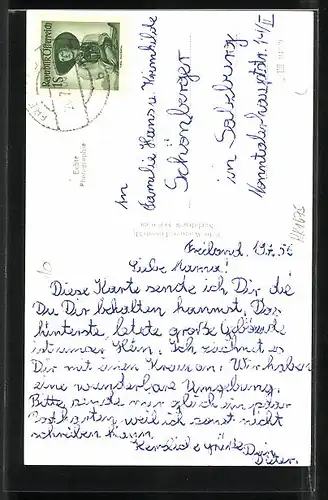 Republik Österreich
An
Familie Hans u. Kriemhilde
Schönberger
in Salzburg
Echte
Photographie
Freiland, 19.7.56
Liebe Mama!
Diese Karte sende ich Dir die
Du Dir behalten kannst. Das
hinterste letzte große Gebäude
ist unser Heim. Ich zeichnet es
Dir mit einen Kreuz an. Wir haben
eine wunderbare Umgebung.
Bitte sende mir gleich ein paar
Postkarten weil ich sonst nicht
schreiben kann.
Herzliche Grüße Dein
Dieter.